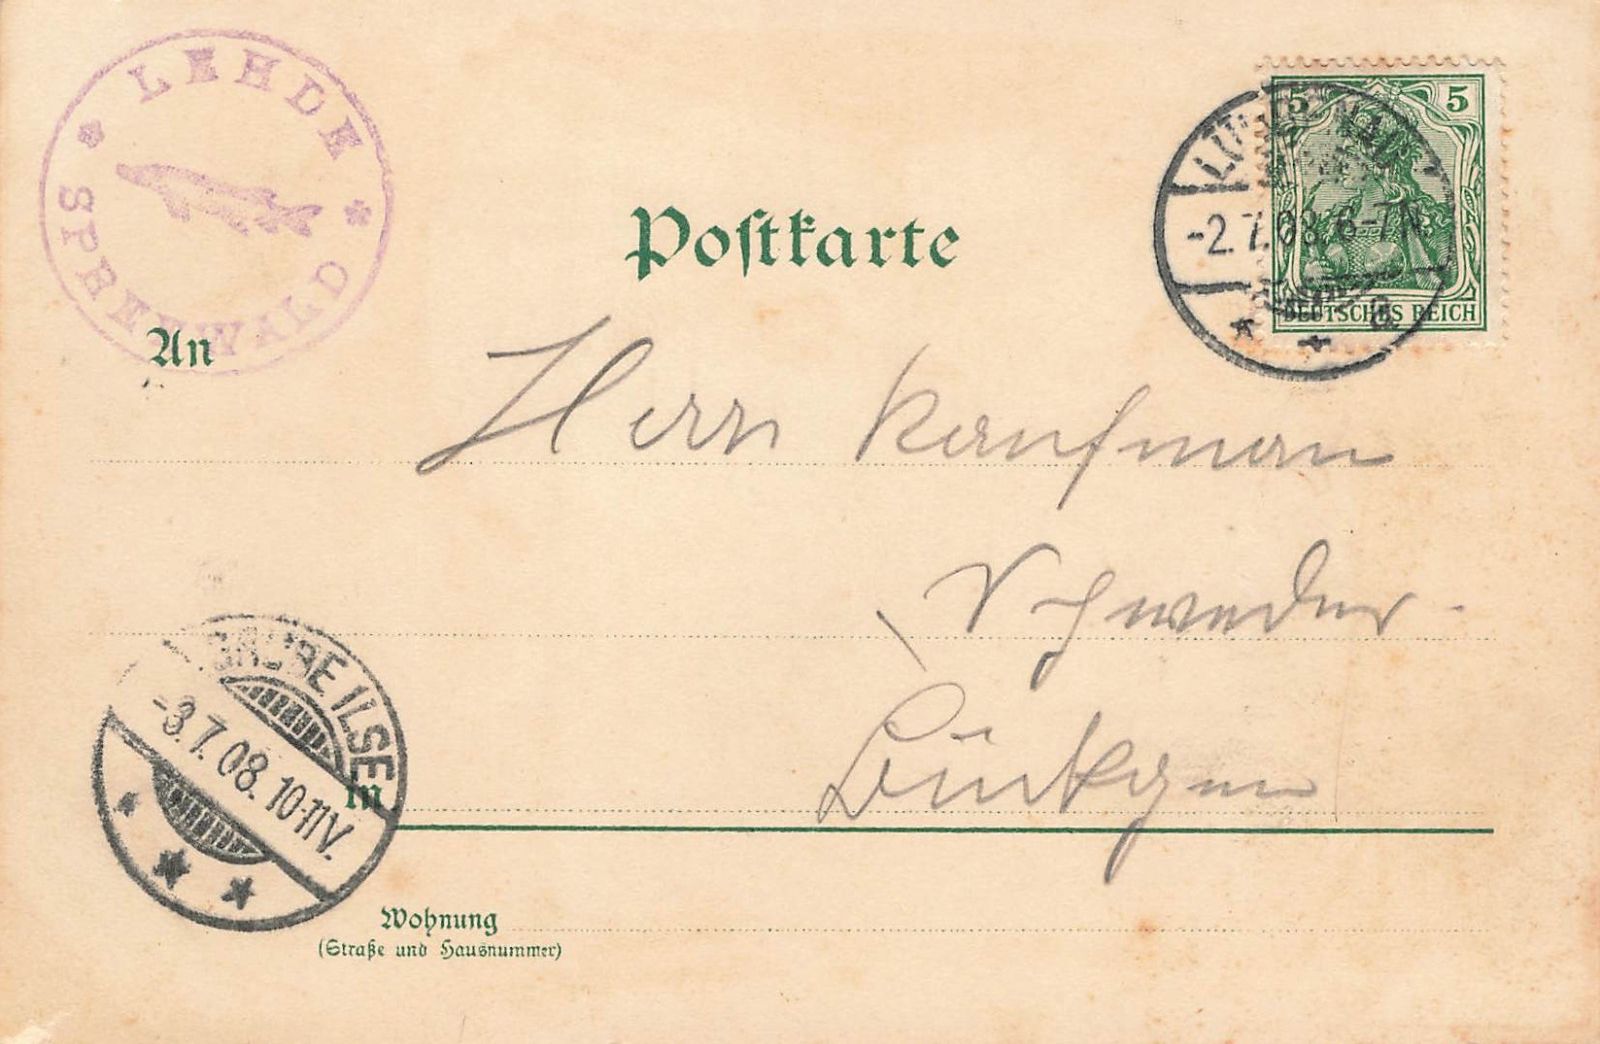 LEHDE
SPREEWALD
5 5
DEUTSCHES REICH
-2.7.08. 6-7N.
a
Postkarte
An
Herrn Kaufman
Schweder
GRUBE ILSE
-3.7.08. 10-11V.
in
Bückgen
Wohnung
(Straße und Hausnummer)